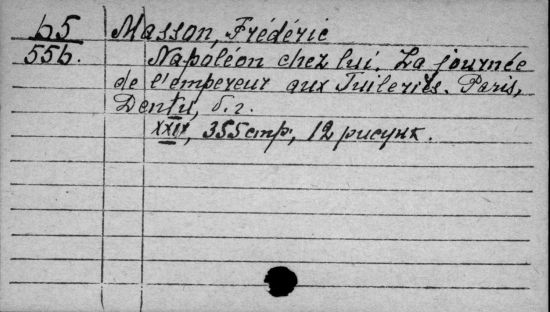 b5 Masson, Frédéric
556. Napoléon chez lui. La journée
de l'empereur aux Tuileries. Paris,
Dentu, б. г.
XXIV, 355 стр, 12 рисунк.